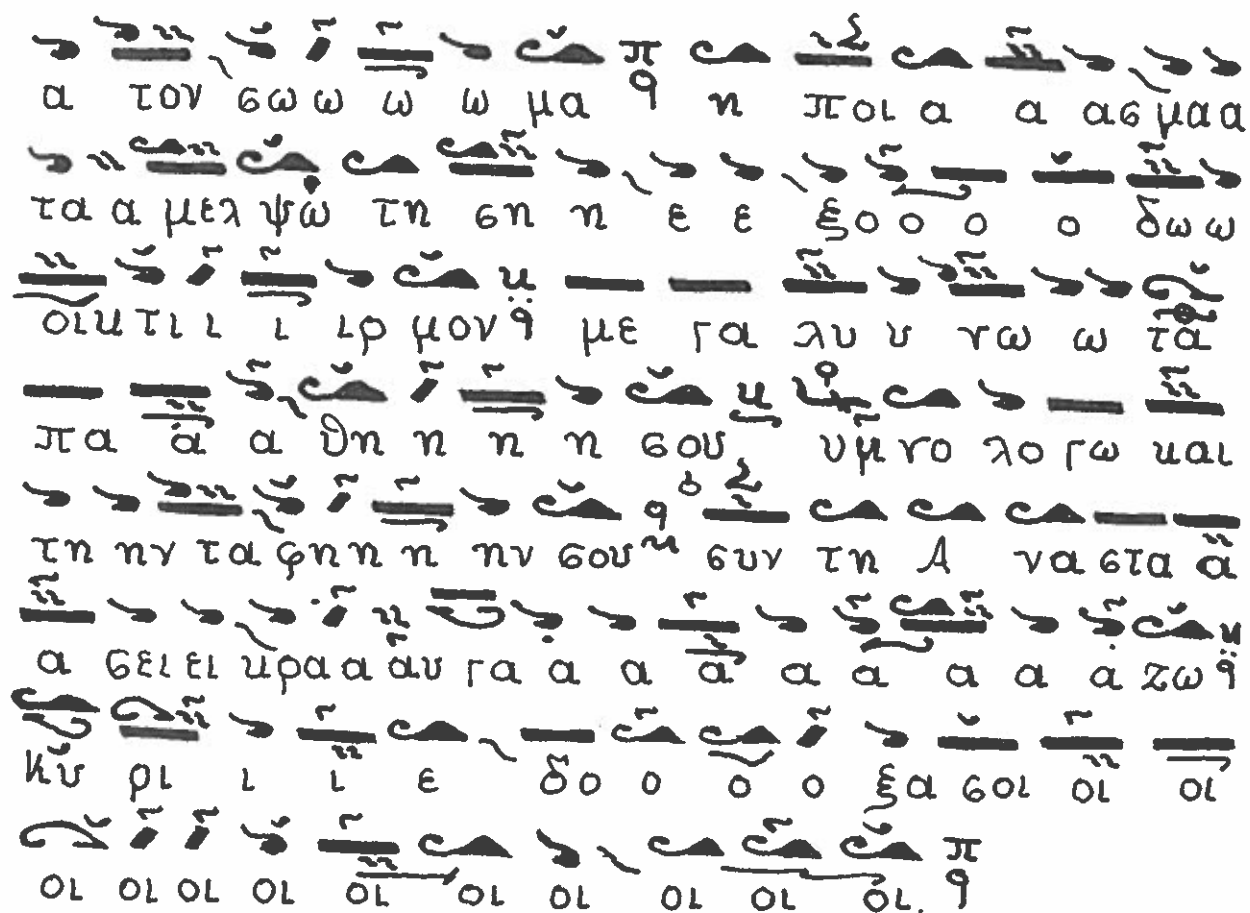 α τον σω ω ω ω μα π q η ποι α α ασ μα α
τα α μελ ψω τη ση η ε ε ξο ο ο ο δω ω
οικ τι ι ι ιρ μον κ q με γα λυ υ νω ω τα
πα α α θη η η η σου κ υμ νο λο γω και
τη ην τα φη η η ην σου q συν τη Α να στα α
α σει ει κρα α αυ γα α α α α α α α α ζω κ q
κυ ρι ι ι ε δο ο ο ο ξα σοι οι οι
οι οι οι οι οι οι οι οι οι οι. π q